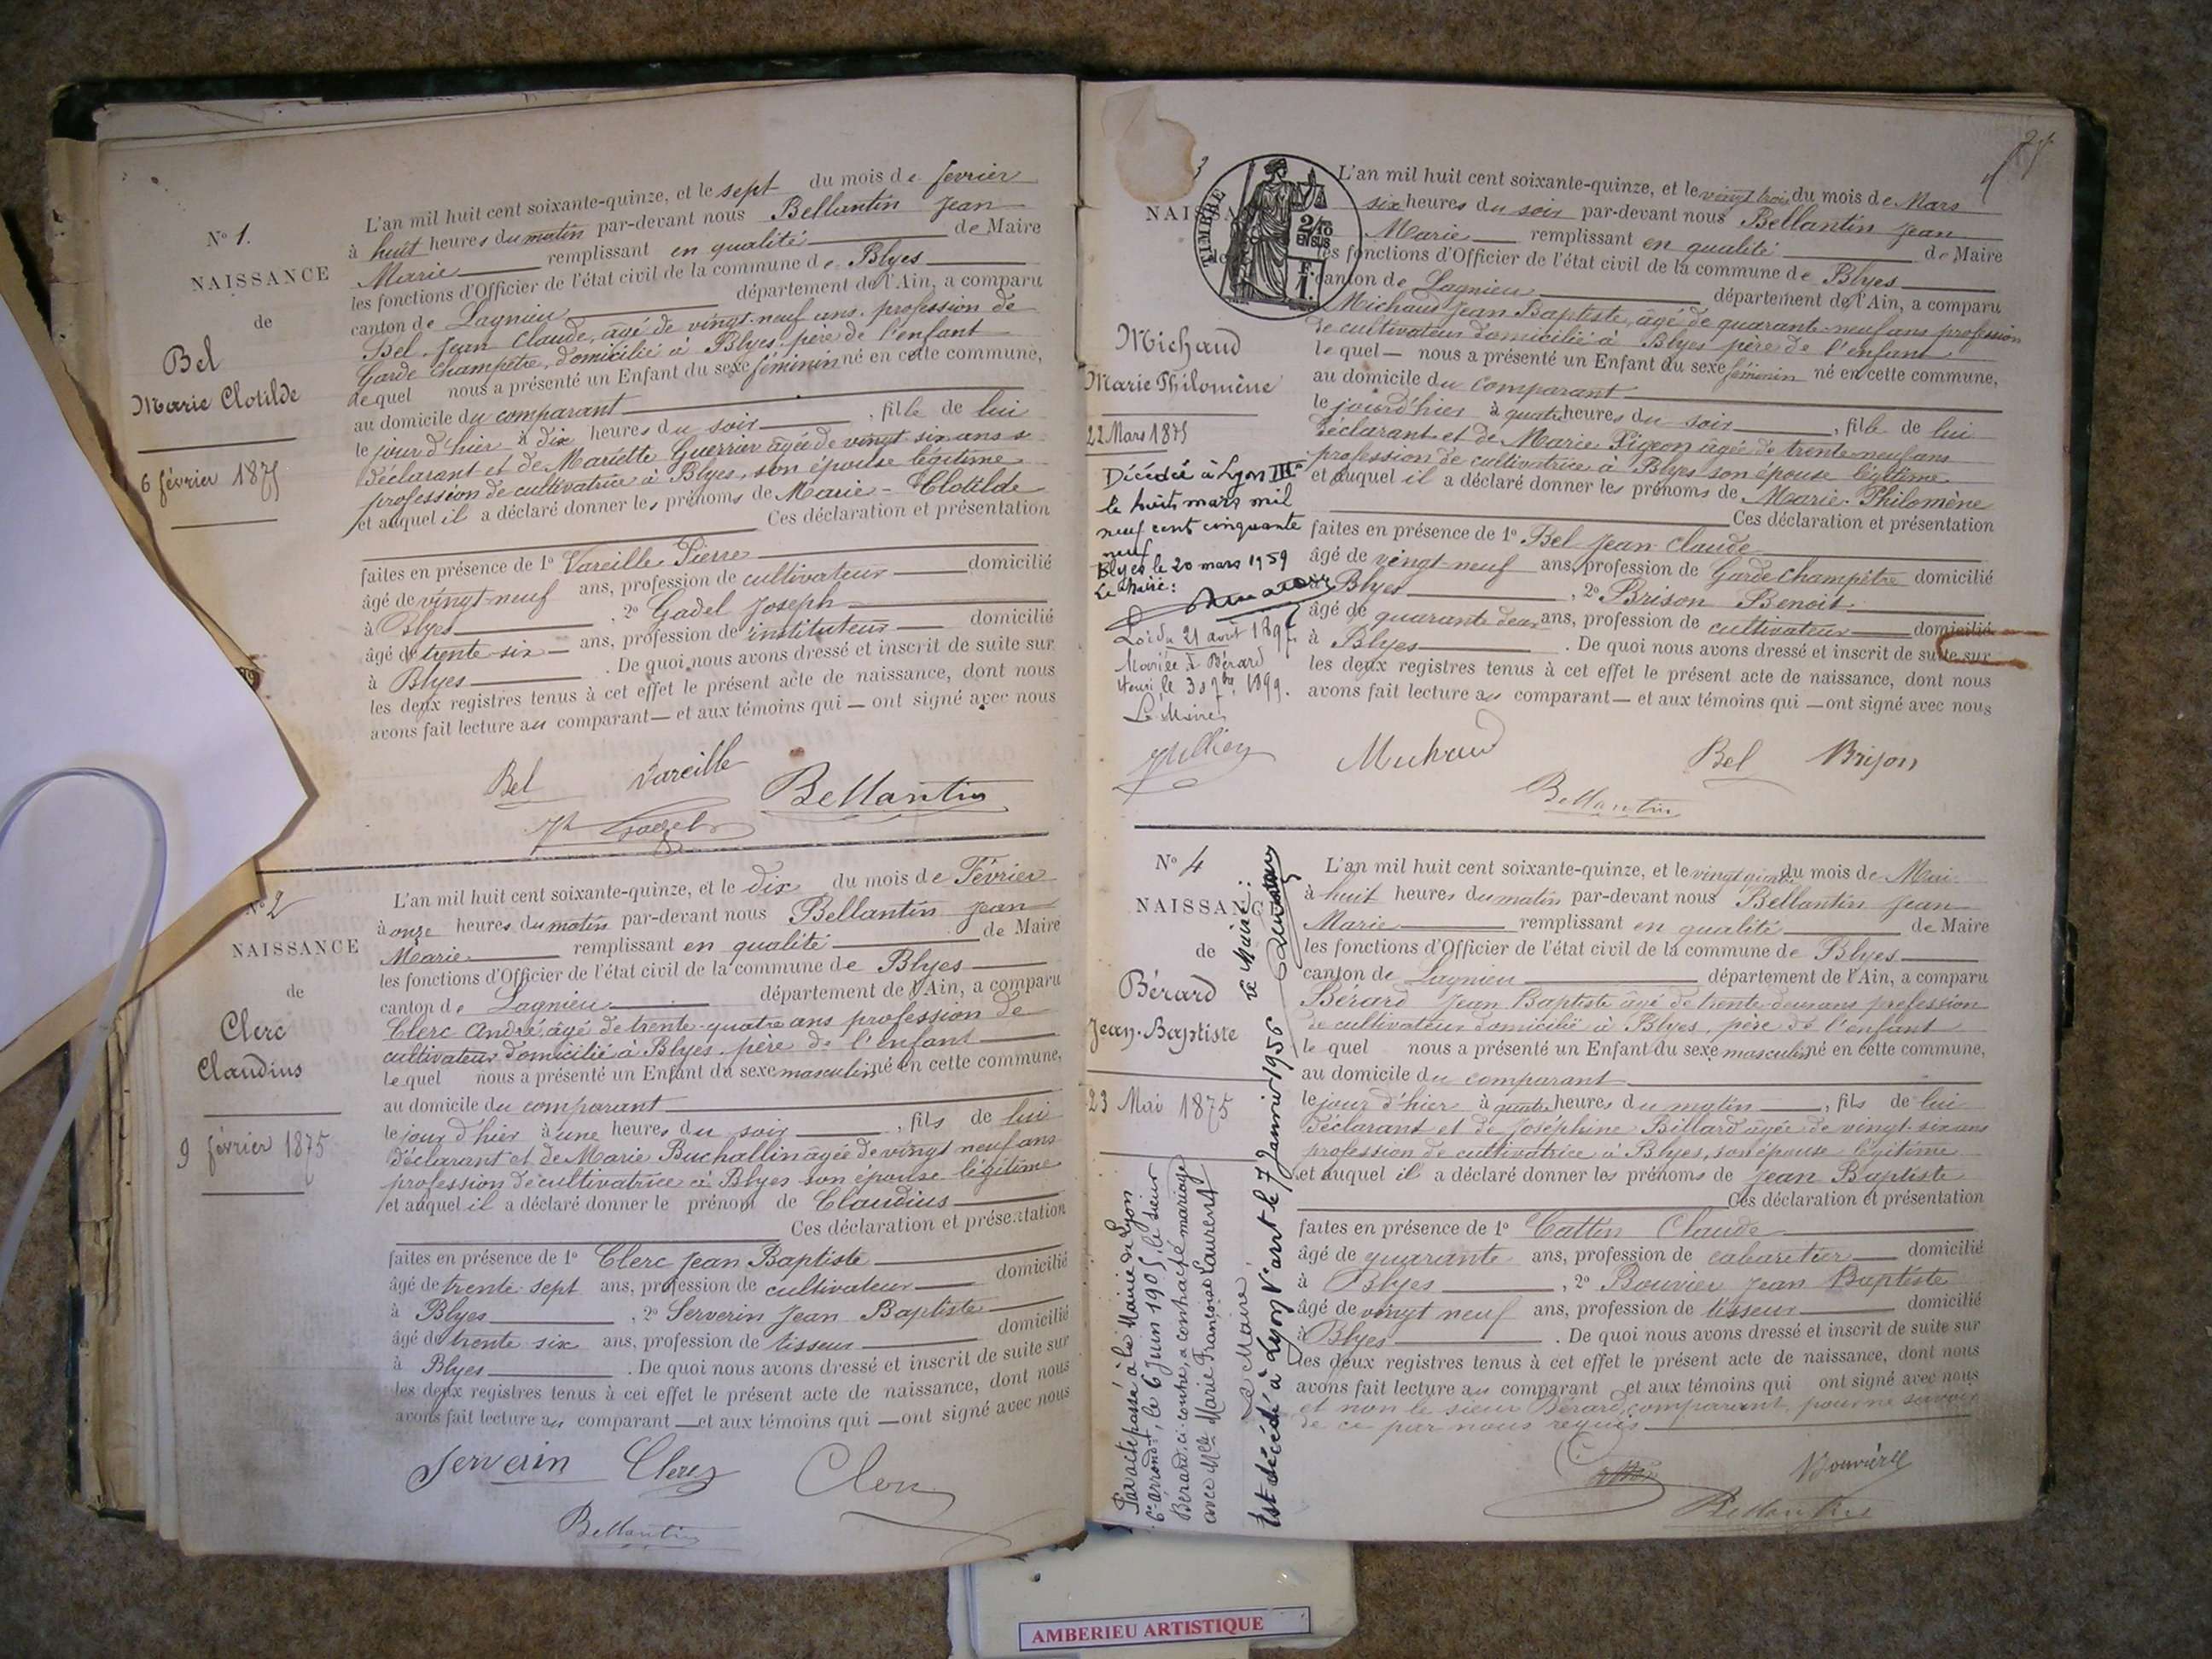 N° 1.
NAISSANCE
de
Bel
Marie Clotilde
6 février 1875
L'an mil huit cent soixante-quinze, et le sept du mois de février
à huit heures du matin par-devant nous Bellantin Jean
Marie remplissant en qualité de Maire
les fonctions d'Officier de l'état civil de la commune de Blyes
canton de Lagnieu département de l'Ain, a comparu
Bel Jean Claude, agé de vingt-neuf ans, profession de
Garde Champêtre, domicilié à Blyes père de l'enfant
lequel nous a présenté un Enfant du sexe féminin né en cette commune,
au domicile du comparant
le jour d'hier à dix heures du soir, fille de lui
déclarant et de Mariette Guerrier agée de vingt six ans
profession de cultivatrice à Blyes, son épouse légitime
et auquel il a déclaré donner les prénoms de Marie-Clotilde
Ces déclaration et présentation
faites en présence de 1° Vareille Pierre
âgé de vingt-neuf ans, profession de cultivateur domicilié
à Blyes, 2° Gadel Joseph
âgé de trente-six ans, profession de instituteur domicilié
à Blyes. De quoi nous avons dressé et inscrit de suite sur
les deux registres tenus à cet effet le présent acte de naissance, dont nous
avons fait lecture au comparant — et aux témoins qui — ont signé avec nous
Bel Vareille
Bellantin
N° 2
NAISSANCE
de
Clerc
Claudius
9 février 1875
L'an mil huit cent soixante-quinze, et le dix du mois de Février
à onze heures du matin par-devant nous Bellantin Jean
Marie remplissant en qualité de Maire
les fonctions d'Officier de l'état civil de la commune de Blyes
canton de Lagnieu département de l'Ain, a comparu
Clerc André, agé de trente-quatre ans profession de
cultivateur domicilié à Blyes père de l'enfant
lequel nous a présenté un Enfant du sexe masculin né en cette commune,
au domicile du comparant
le jour d'hier à une heures du soir, fils de lui
déclarant et de Marie Buchallin agée de vingt neuf ans
profession de cultivatrice à Blyes son épouse légitime
et auquel il a déclaré donner le prénom de Claudius
Ces déclaration et présentation
faites en présence de 1° Clerc Jean Baptiste
âgé de trente-sept ans, profession de cultivateur domicilié
à Blyes, 2° Serverin Jean Baptiste
âgé de trente six ans, profession de tisseur domicilié
à Blyes. De quoi nous avons dressé et inscrit de suite sur
les deux registres tenus à cet effet le présent acte de naissance, dont nous
avons fait lecture au comparant — et aux témoins qui — ont signé avec nous
Serverin Clerc
Bellantin
3
TIMBRE
2/10
EN SUS
F.
1.
Michaud
Marie Philomène
22 Mars 1875
Décédée à Lyon III e
le huit mars mil
neuf cent cinquante
neuf
Blyes le 20 mars 1959
Le Maire:
Loi du 21 août 1897.
Mariée à Bérard
Henri le 30 7bre 1899.
Le Maire
Jullien
L'an mil huit cent soixante-quinze, et le vingt trois du mois de Mars
six heures du soir par-devant nous Bellantin Jean
Marie remplissant en qualité de Maire
les fonctions d'Officier de l'état civil de la commune de Blyes
canton de Lagnieu département de l'Ain, a comparu
Michaud Jean Baptiste, âgé de quarante-neuf ans profession
de cultivateur domicilié à Blyes père de l'enfant
lequel — nous a présenté un Enfant du sexe féminin né en cette commune,
au domicile du comparant
le jour d'hier à quatre heures du soir, fille de lui
déclarant et de Marie Pigeon âgée de trente-neuf ans
profession de cultivatrice à Blyes son épouse légitime
et auquel il a déclaré donner les prénoms de Marie-Philomène
Ces déclaration et présentation
faites en présence de 1° Bel Jean Claude
âgé de vingt-neuf ans, profession de Garde champêtre domicilié
Blyes, 2° Brison Benoit
âgé de quarante deux ans, profession de cultivateur domicilié
à Blyes. De quoi nous avons dressé et inscrit de suite sur
les deux registres tenus à cet effet le présent acte de naissance, dont nous
avons fait lecture au comparant — et aux témoins qui — ont signé avec nous
Michaud Bel Brison
Bellantin
N° 4
NAISSANCE
de
Bérard
Jean-Baptiste
23 Mai 1875
Par acte passé à la Mairie de Lyon
6e arrondt, le 6 Juin 1905, le sieur
Bérard, ci-contre, a contracté mariage
avec Mlle Marie Françoise Laurent
Le Maire,
Est décédé à Lyon Vart le 7 Janvier 1956 Le Maire:
L'an mil huit cent soixante-quinze, et le vingt quatre du mois de Mai
à huit heures du matin par-devant nous Bellantin Jean
Marie remplissant en qualité de Maire
les fonctions d'Officier de l'état civil de la commune de Blyes
canton de Lagnieu département de l'Ain, a comparu
Bérard Jean Baptiste âgé de trente-deux ans profession
de cultivateur domicilié à Blyes, père de l'enfant
lequel nous a présenté un Enfant du sexe masculin né en cette commune,
au domicile du comparant
le jour d'hier à quatre heures du matin, fils de lui
déclarant et de Joséphine Billard agée de vingt-six ans
profession de cultivatrice à Blyes, son épouse légitime
et auquel il a déclaré donner les prénoms de Jean Baptiste
Ces déclaration et présentation
faites en présence de 1° Cattin Claude
âgé de quarante ans, profession de cabaretier domicilié
à Blyes, 2° Bouvier Jean Baptiste
âgé de vingt neuf ans, profession de tisseur domicilié
à Blyes. De quoi nous avons dressé et inscrit de suite sur
les deux registres tenus à cet effet le présent acte de naissance, dont nous
avons fait lecture au comparant et aux témoins qui ont signé avec nous
et non le sieur Bérard, comparant, pour ne savoir
de ce par nous requis
Bellantin
AMBERIEU ARTISTIQUE